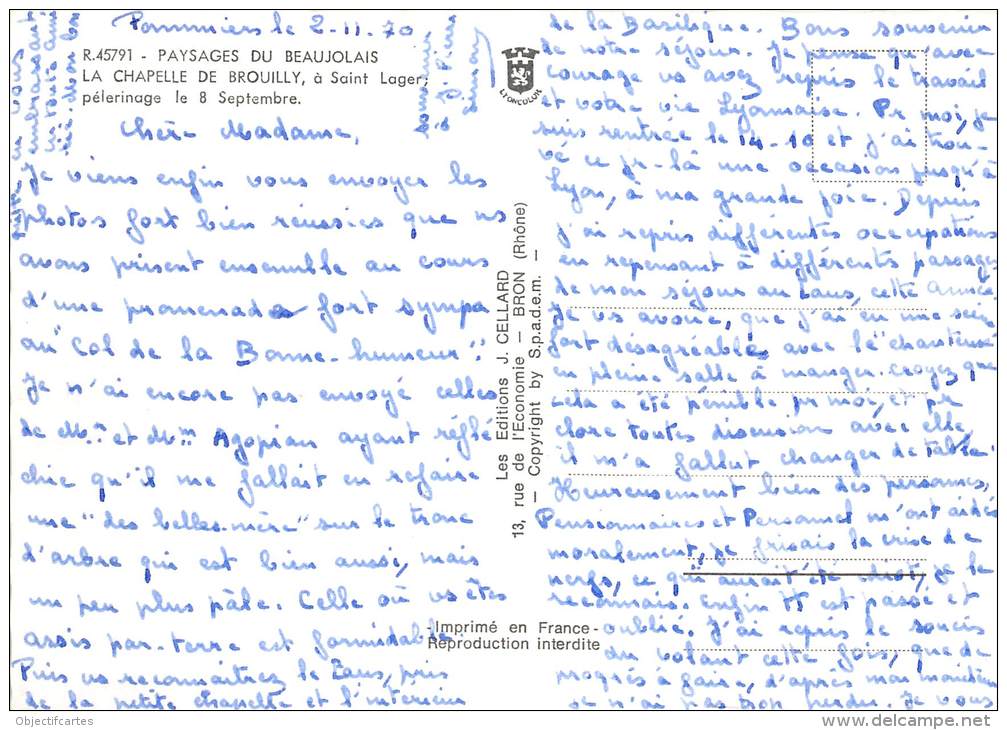 Pommiers le 2-11-70
R.45791 - PAYSAGES DU BEAUJOLAIS
LA CHAPELLE DE BROUILLY, à Saint Lager;
pélerinage le 8 Septembre.
Chère Madame,
Je viens enfin vous envoyer les
photos fort bien réussies que ns
avons prisent ensemble au cours
d'une promenade fort sympa
au "Col de la Bonne-humeur".
Je n'ai encore pas envoyé celles
de Mr et Mme Agopian ayant réflé
chie qu'il me fallait en refaire
une "des belles-mère" sur le tronc
d'arbre qui est bien aussi, mais
un peu plus pâle. Celle où vs êtes
assis par-terre est formidable.
Puis vs reconnaitrez le Laus, pris
de la petite chapelle et l'intérieur
de la Basilique. Bons souvenirs
de notre séjour. Je pense qu'avec
courage vs avez repris le travail
et votre vie Lyonnaise. Pr moi, je
suis rentrée le 14-10 et j'ai trou-
vé ce jr-là une occasion jusqu'à
Lyon, à ma grande joie. Depuis
j'ai repris différentes occupations
en repensant à différents passages
de mon séjour au Laus, cette année
Je vs avoue, que j'ai eu une
fort désagréable avec le "chanteur"
en pleine salle à manger. Croyez que
cela a été pénible pr moi, et pr
clore toutes discussion avec elle,
il m'a fallut changer de table.
Heureusement bien des personnes,
Pensionnaires et Personnel m'ont aidés
moralement, je frisais la crise de
nerfs, ce qui aurait été idiot, je le
reconnais. Enfin tt est passé et
oublié. J'ai repris le soucis
du volant cette fois, que de
progrès à faire, d'après mon moniteur
je n'ai pas trop perdu. Je vous
embrassant
LYONCOLOR
Les Editions J. CELLARD
13, rue de l'Economie — BRON (Rhône)
— Copyright by S.p.a.d.e.m. —
-Imprimé en France-
Reproduction interdite
Objectifcartes
delcampe.net